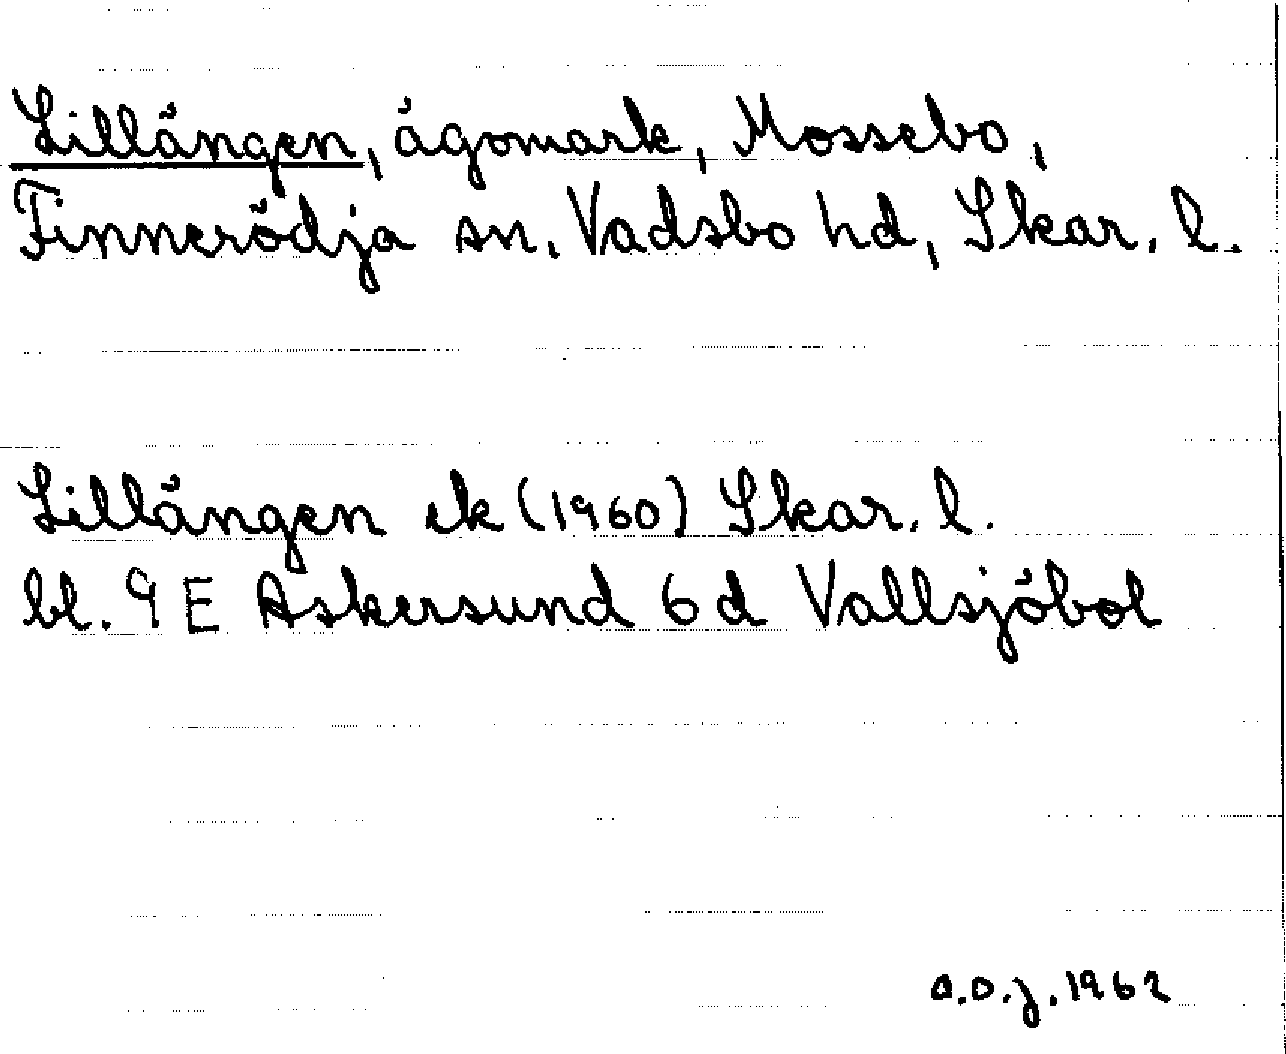 Lillängen, ägomark, Mossebo,
Finnerödja sn. Vadsbo hd, Skar. l.
Lillängen ek (1960) Skar. l.
bl. 9 E Askersund 6 d Vallsjöbol
a.o.j. 1962